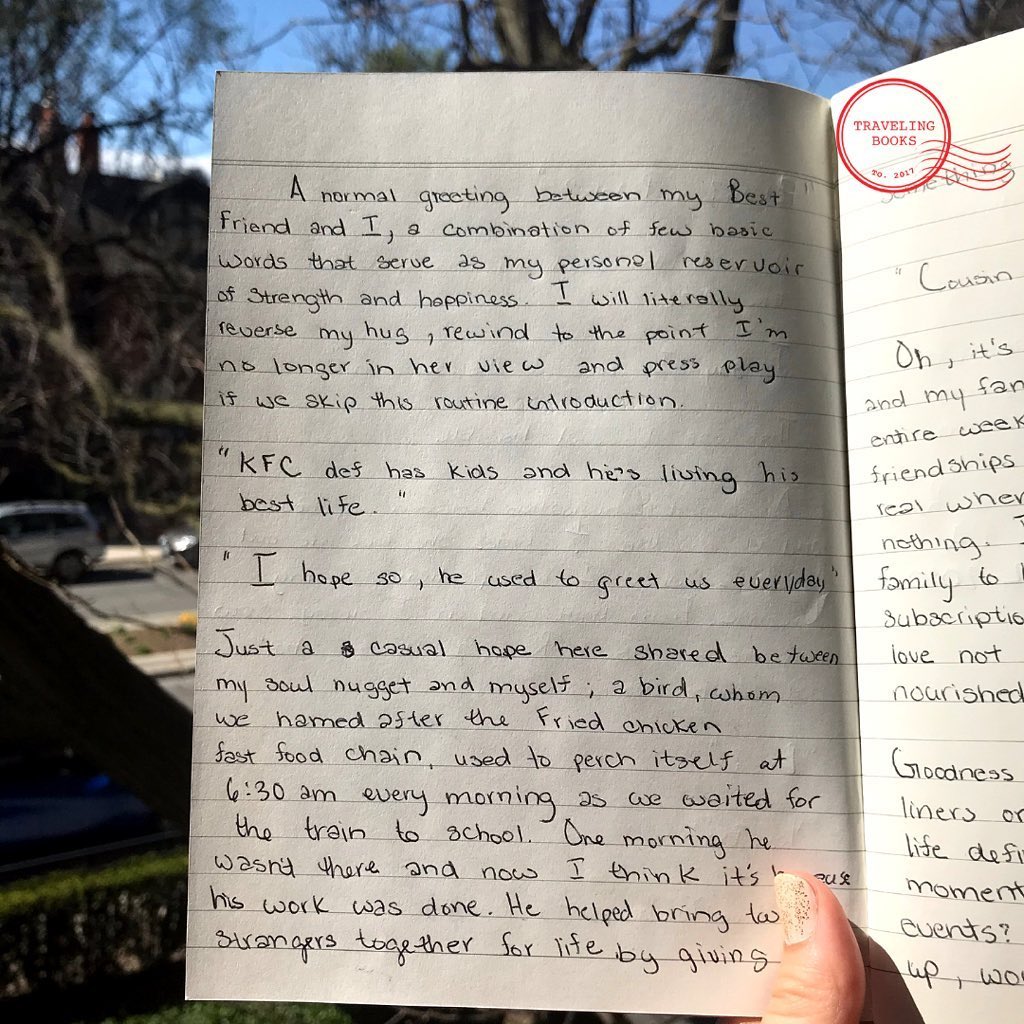 A normal greeting between my Best
friend and I, a combination of few basic
words that serve as my personal reservoir
of strength and happiness. I will literally
reverse my hug, rewind to the point I'm
no longer in her view and press play
if we skip this routine introduction.
"KFC def has kids and he's living his
best life."
"I hope so, he used to greet us everyday"
Just a casual hope here shared between
my soul nugget and myself; a bird, whom
we named after the Fried chicken
fast food chain, used to perch itself at
6:30 am every morning as we waited for
the train to school. One morning he
wasn't there and now I think it's
his work was done. He helped bring
strangers together for life by giving
TRAVELING
BOOKS
TO. 2017
something
"Cousin
Oh, it's
and my
entire week
friendships
real
nothing.
family to
subscriptio
love not
nourished
Goodness
liners or
life
moment
events?
up,